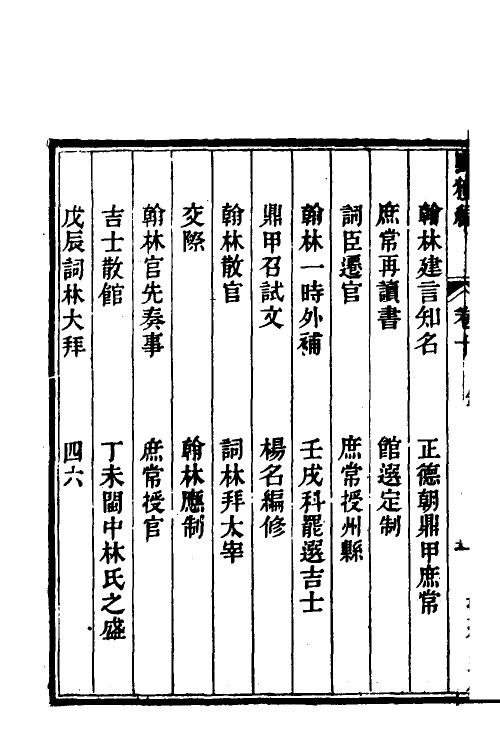 翰林建言知名　正德朝鼎甲庶常
庶常再讀書　館選定制
詞臣遷官　庶常授州縣
翰林一時外補　壬戌科罷選吉士
鼎甲召試文　楊名編修
翰林散官　詞林拜太宰
交際　翰林應制
翰林官先奏事　庶常授官
吉士散館　丁未閩中林氏之盛
戊辰詞林大拜　四六